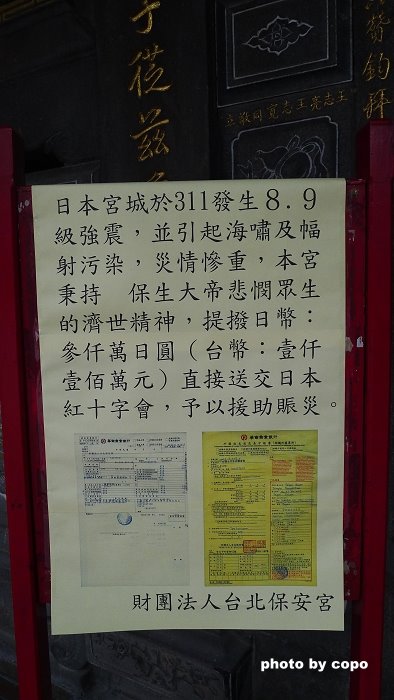 子從茲
贊鈞拜
立敬司寬志王亮志王
日本宮城於311發生8.9
級強震，並引起海嘯及幅
射污染，災情慘重，本宮
秉持　保生大帝悲憫眾生
的濟世精神，提撥日幣：
參仟萬日圓（台幣：壹仟
壹佰萬元）直接送交日本
紅十字會，予以援助賑災。
財團法人台北保安宮
photo by copo